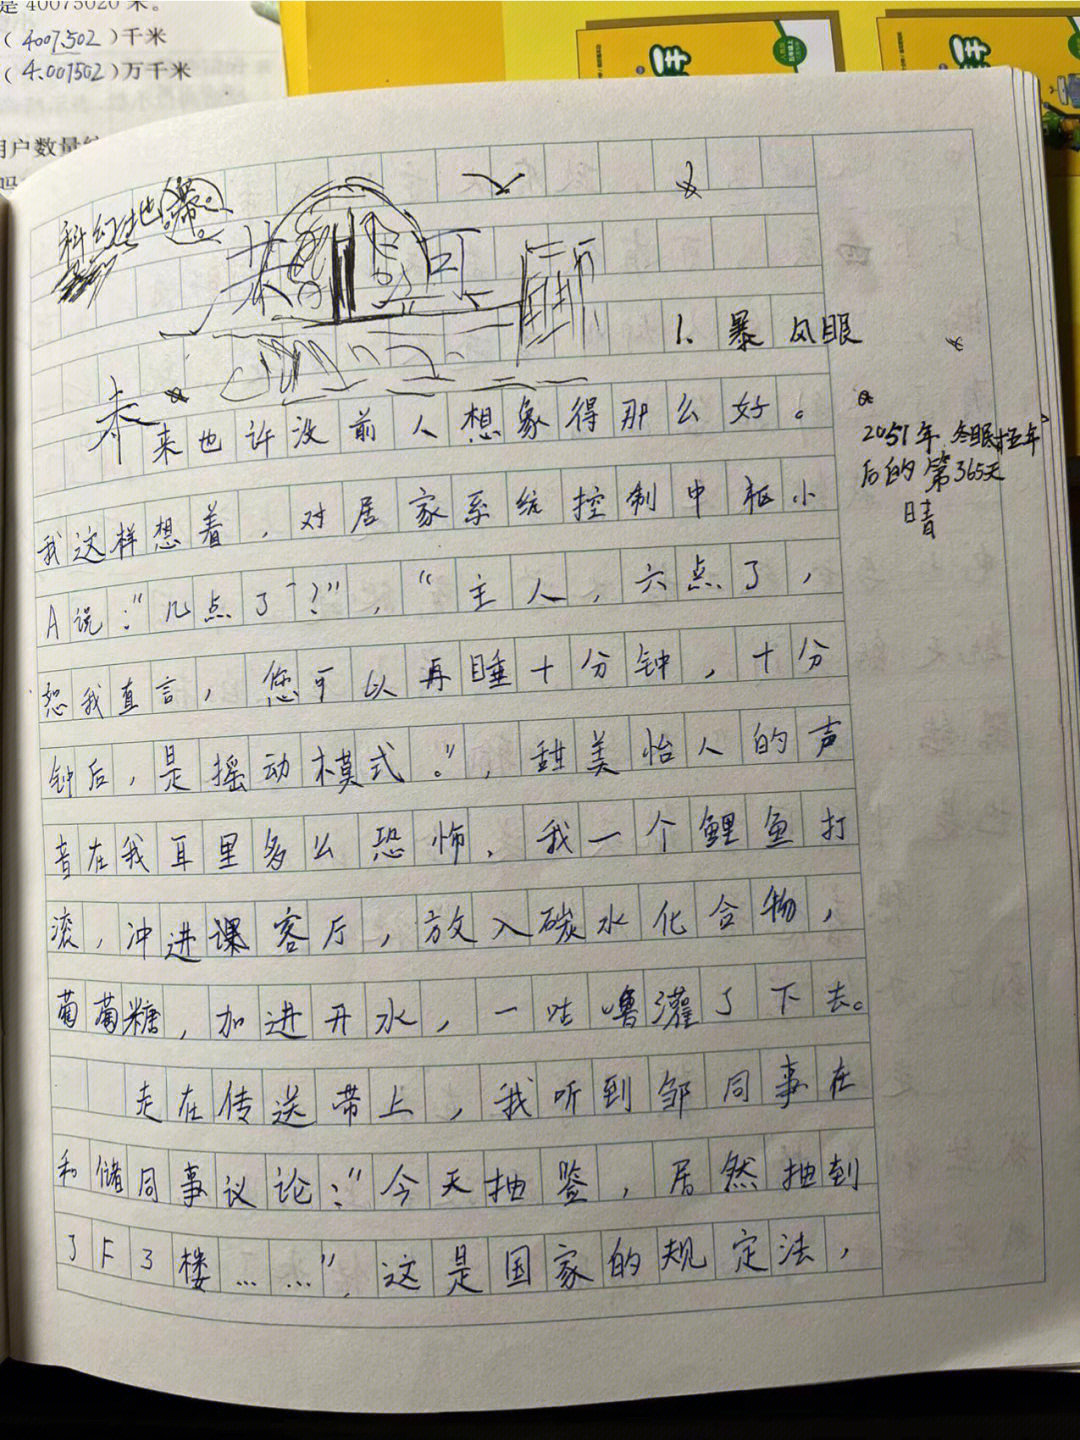 是 40075020 米。
(4007.502)千米
(4.007502)万千米
用户数量
科幻地带
1、暴风眼
未来也许没前人想象得那么好。
2051年
后的第365天
晴
我这样想着，对居家系统控制中枢小
A说：“几点了？”，“主人，六点了，
恕我直言，您可以再睡十分钟，十分
钟后，是摇动模式。”，甜美怡人的声
音在我耳里多么恐怖，我一个鲤鱼打
滚，冲进客厅，放入碳水化合物，
葡萄糖，加进开水，一咕噜灌了下去。
走在传送带上，我听到邹同事在
和储同事议论：“今天抽签，居然抽到
了F3楼……”，这是国家的规定法，